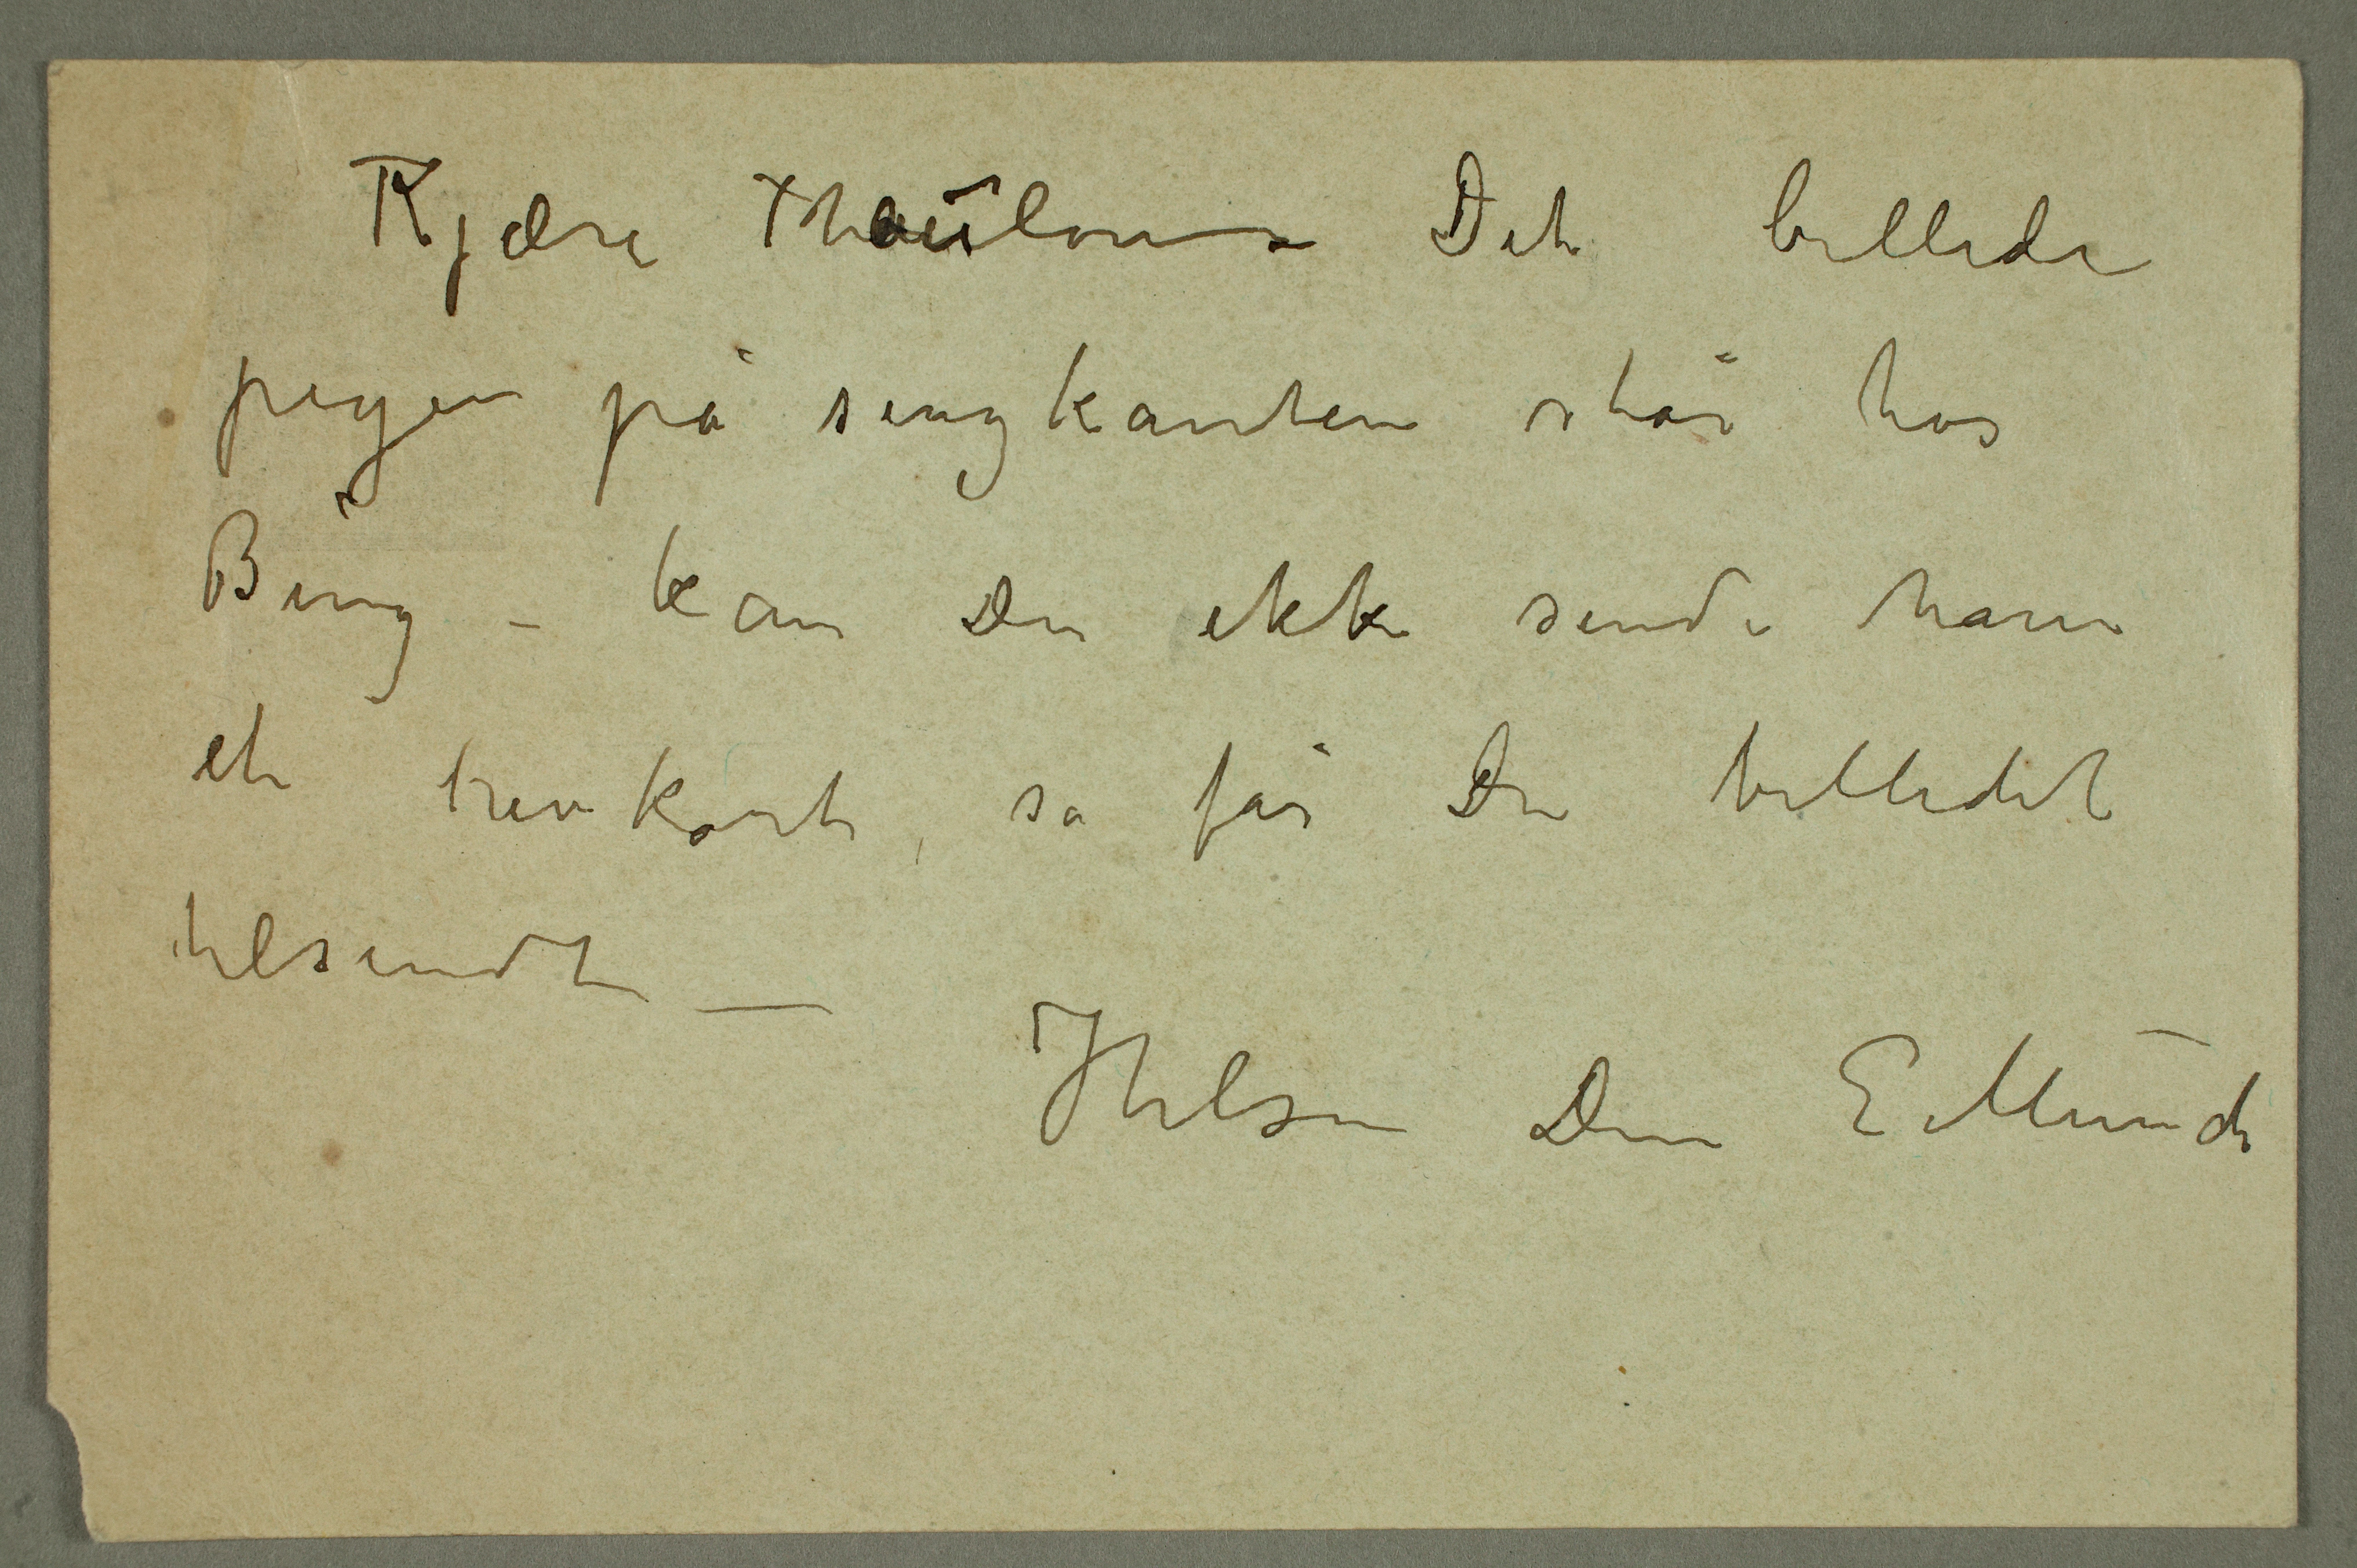 Kjære Thaulow Det billede
pigen på sengkanten står hos
Bing – kan Du ikke sende ham
et brevkort, så får Du billedet
tilsendt –
Hilsen Din E Munch